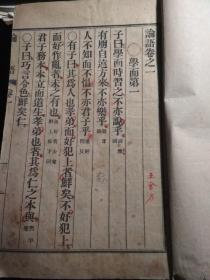 論語卷之一
○學而第一
子曰學而時習之不亦說乎
有朋自遠方來不亦樂乎
人不知而不慍不亦君子乎
○有子曰其為人也孝弟而好犯上者鮮矣不好犯上
而好作亂者未之有也
君子務本本立而道生孝弟也者其為仁之本與
○子曰巧言令色鮮矣仁